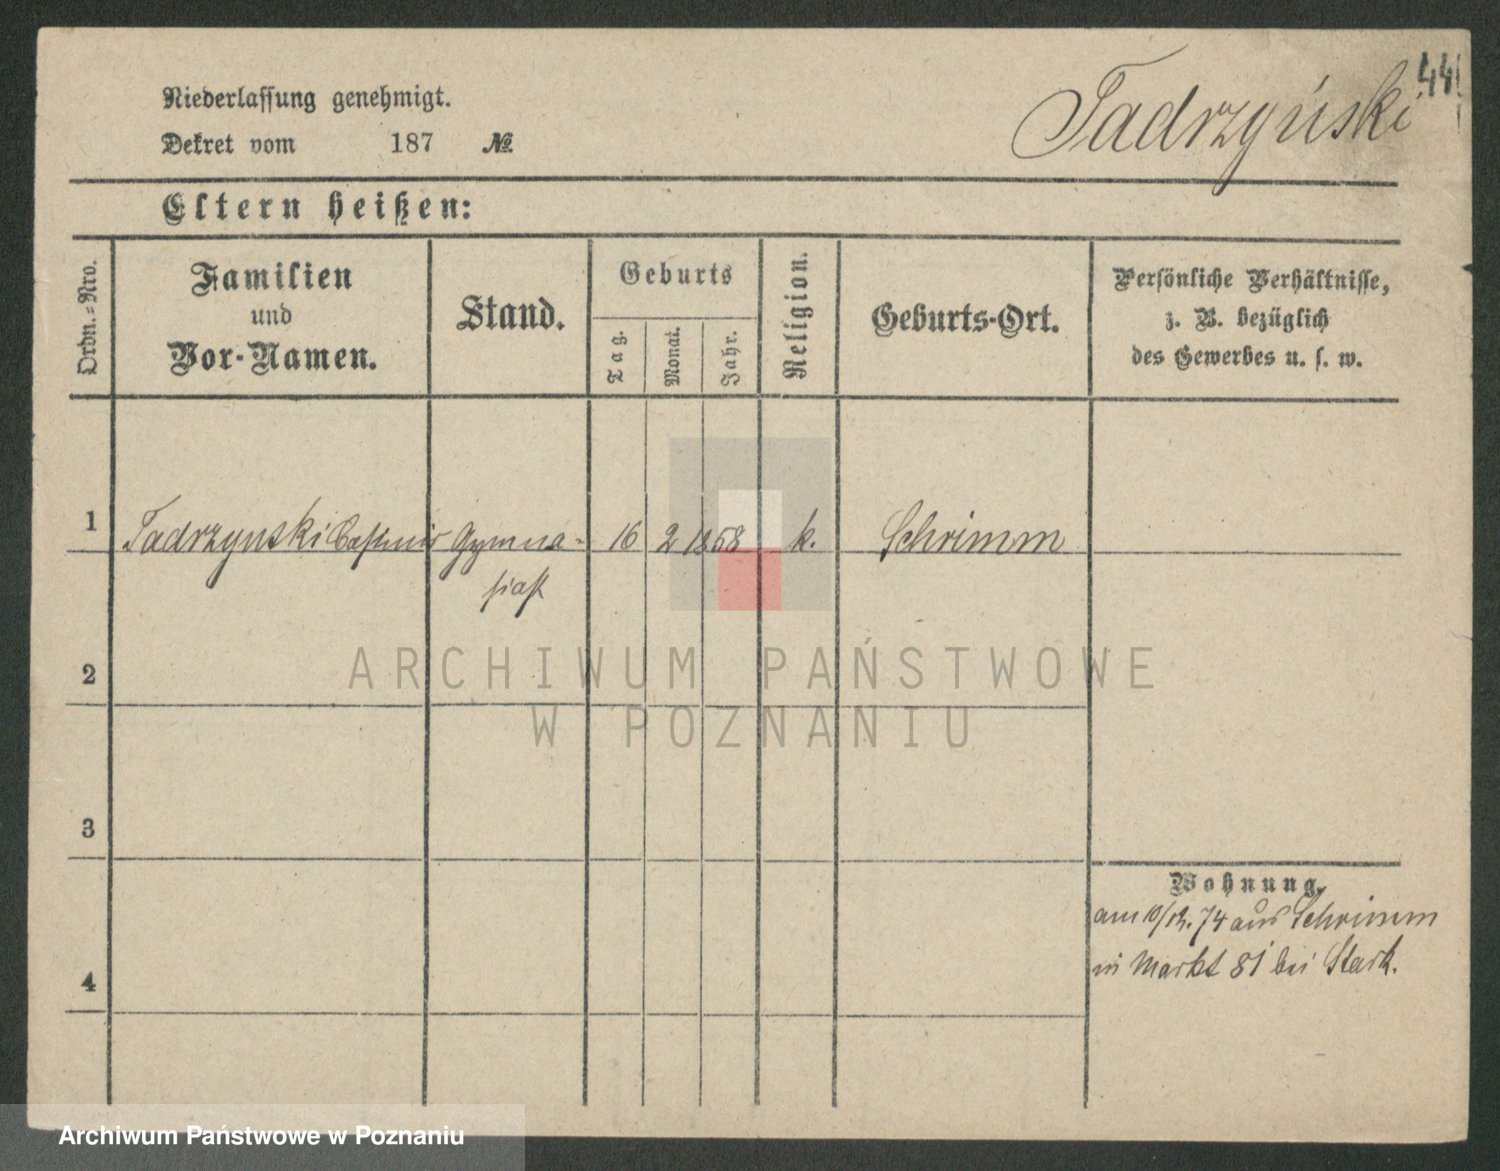 44
Tadrzyński
Niederlassung genehmigt.
Dekret vom 187 №
Eltern heißen:
Ordn.-Nro.
Familien
und
Vor-Namen.
Stand.
Geburts
Tag.
Monat.
Jahr.
Religion.
Geburts-Ort.
Persönliche Verhältnisse,
z. B. bezüglich
des Gewerbes u. s. w.
1 Tadrzynski Casimir Gymna- 16 2 1858 k. Schrimm
siast
2
3
4
Wohnung.
am 10/12. 74 aus Schrimm
in Markt 81 bei Stark.
ARCHIWUM PAŃSTWOWE
W POZNANIU
Archiwum Państwowe w Poznaniu